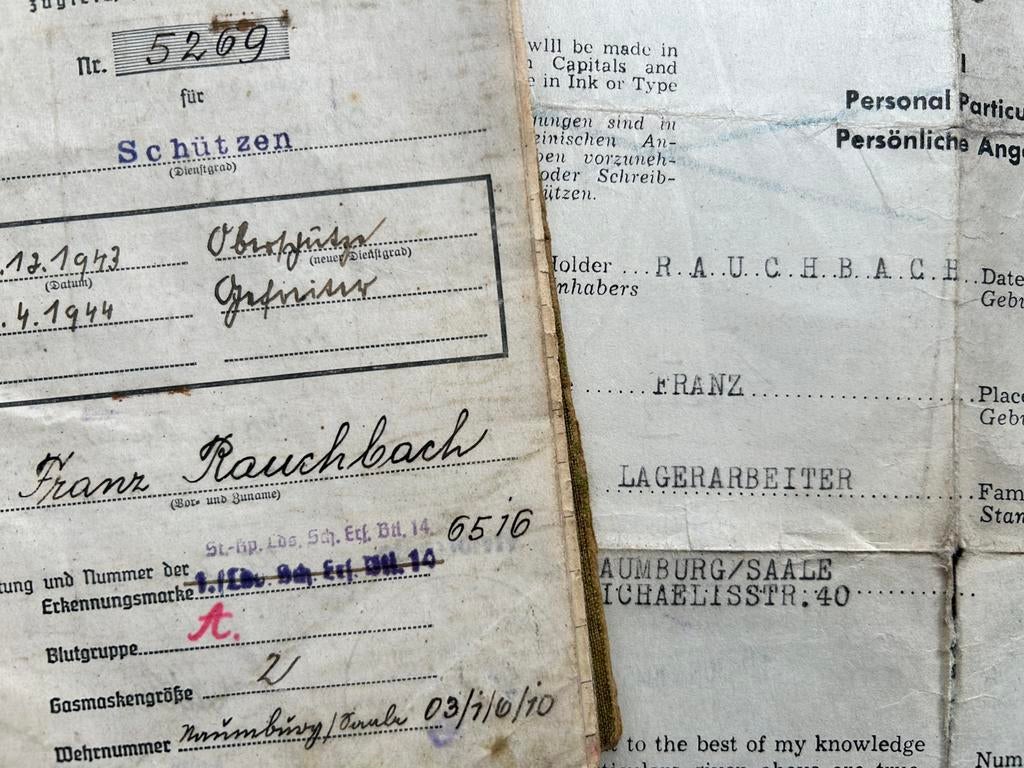 Nr. 5269
für
Schützen
(Dienstgrad)
.12.1943 Oberschütze
(Datum) (neuer Dienstgrad)
.4.1944 Gefreiter
Franz Rauchbach
(Vor- und Zuname)
St.-Kp. Lds. Sch. Ers. Btl. 14. 6516
tung und Nummer der 1./Lds. Sch. Ers. Btl. 14
Erkennungsmarke
Blutgruppe A.
Gasmaskengröße 2
Wehrnummer Naumburg/Saale 03/1/6/10
will be made in
Capitals and
in Ink or Type
ungen sind in
einischen An-
ben vorzuneh-
oder Schreib-
ützen.
I
Personal Particu
Persönliche Ange
Holder R.A.U.C.H.B.A.C.H. Date
nhabers Gebu
FRANZ Place
Gebu
LAGERARBEITER Fam
Stan
AUMBURG/SAALE
ICHAELISSTR.40
to the best of my knowledge
given above are true
Num